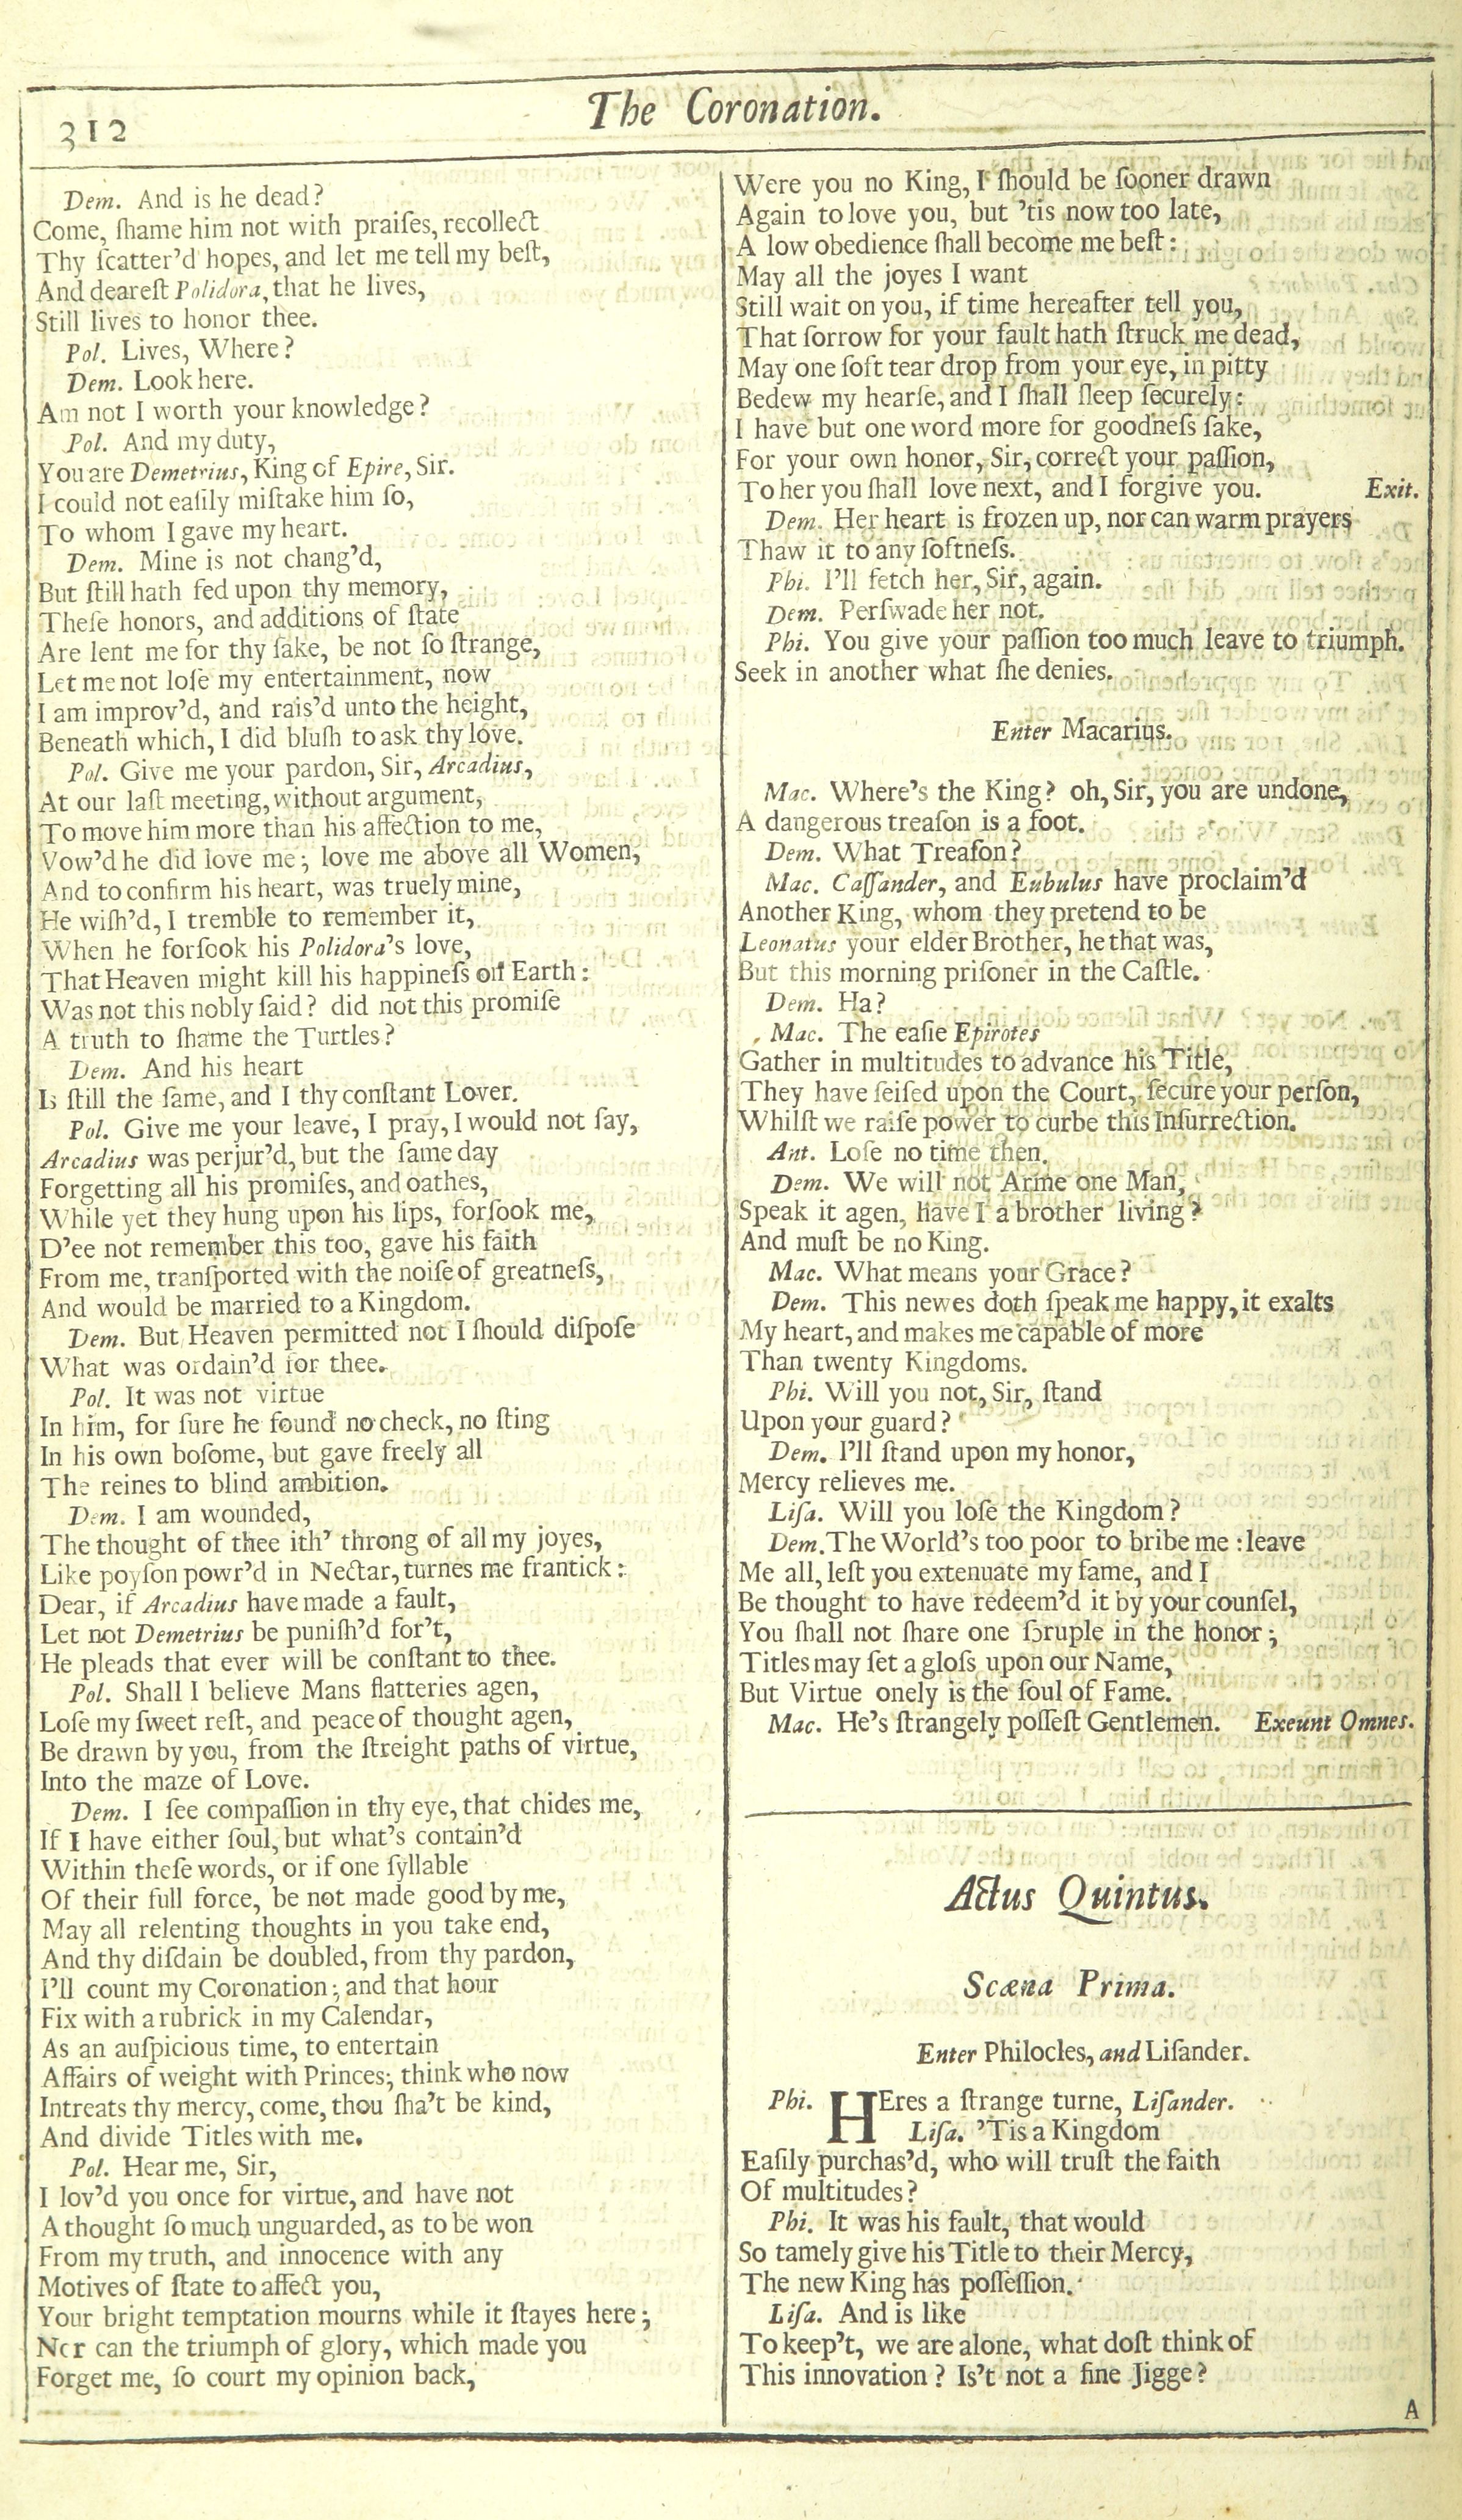 312
The Coronation.
Dem. And is he dead?
Come, ſhame him not with praiſes, recollect
Thy ſcatter'd hopes, and let me tell my beſt,
And deareſt Polidora, that he lives,
Still lives to honor thee.
Pol. Lives, Where?
Dem. Look here.
Am not I worth your knowledge?
Pol. And my duty,
You are Demetrius, King of Epire, Sir.
I could not eaſily miſtake him ſo,
To whom I gave my heart.
Dem. Mine is not chang'd,
But ſtill hath fed upon thy memory,
Theſe honors, and additions of ſtate
Are lent me for thy ſake, be not ſo ſtrange,
Let me not loſe my entertainment, now
I am improv'd, and rais'd unto the height,
Beneath which, I did bluſh to ask thy love.
Pol. Give me your pardon, Sir, Arcadius,
At our laſt meeting, without argument,
To move him more than his affection to me,
Vow'd he did love me; love me above all Women,
And to confirm his heart, was truely mine,
He wiſh'd, I tremble to remember it,
When he forſook his Polidora's love,
That Heaven might kill his happineſs on Earth:
Was not this nobly ſaid? did not this promiſe
A truth to ſhame the Turtles?
Dem. And his heart
Is ſtill the ſame, and I thy conſtant Lover.
Pol. Give me your leave, I pray, I would not ſay,
Arcadius was perjur'd, but the ſame day
Forgetting all his promiſes, and oathes,
While yet they hung upon his lips, forſook me,
D'ee not remember this too, gave his faith
From me, tranſported with the noiſe of greatneſs,
And would be married to a Kingdom.
Dem. But Heaven permitted not I ſhould diſpoſe
What was ordain'd for thee.
Pol. It was not virtue
In him, for ſure he found no check, no ſting
In his own boſome, but gave freely all
The reines to blind ambition.
Dem. I am wounded,
The thought of thee ith' throng of all my joyes,
Like poyſon powr'd in Nectar, turnes me frantick:
Dear, if Arcadius have made a fault,
Let not Demetrius be puniſh'd for't,
He pleads that ever will be conſtant to thee.
Pol. Shall I believe Mans flatteries agen,
Loſe my ſweet reſt, and peace of thought agen,
Be drawn by you, from the ſtreight paths of virtue,
Into the maze of Love.
Dem. I ſee compaſſion in thy eye, that chides me,
If I have either ſoul, but what's contain'd
Within theſe words, or if one ſyllable
Of their full force, be not made good by me,
May all relenting thoughts in you take end,
And thy diſdain be doubled, from thy pardon,
I'll count my Coronation; and that hour
Fix with a rubrick in my Calendar,
As an auſpicious time, to entertain
Affairs of weight with Princes; think who now
Intreats thy mercy, come, thou ſha't be kind,
And divide Titles with me.
Pol. Hear me, Sir,
I lov'd you once for virtue, and have not
A thought ſo much unguarded, as to be won
From my truth, and innocence with any
Motives of ſtate to affect you,
Your bright temptation mourns while it ſtayes here;
Nor can the triumph of glory, which made you
Forget me, ſo court my opinion back,
Were you no King, I ſhould be ſooner drawn
Again to love you, but 'tis now too late,
A low obedience ſhall become me beſt:
May all the joyes I want
Still wait on you, if time hereafter tell you,
That ſorrow for your fault hath ſtruck me dead,
May one ſoft tear drop from your eye, in pitty
Bedew my hearſe, and I ſhall ſleep ſecurely:
I have but one word more for goodneſs ſake,
For your own honor, Sir, correct your paſſion,
To her you ſhall love next, and I forgive you. Exit.
Dem. Her heart is frozen up, nor can warm prayers
Thaw it to any ſoftneſs.
Phi. I'll fetch her, Sir, again.
Dem. Perſwade her not.
Phi. You give your paſſion too much leave to triumph.
Seek in another what ſhe denies.
Enter Macarius.
Mac. Where's the King? oh, Sir, you are undone,
A dangerous treaſon is a foot.
Dem. What Treaſon?
Mac. Caſſander, and Eubulus have proclaim'd
Another King, whom they pretend to be
Leonatus your elder Brother, he that was,
But this morning priſoner in the Caſtle.
Dem. Ha?
Mac. The eaſie Epirotes
Gather in multitudes to advance his Title,
They have ſeiſed upon the Court, ſecure your perſon,
Whilſt we raiſe power to curbe this Inſurrection.
Ant. Loſe no time then.
Dem. We will not Arme one Man,
Speak it agen, have I a brother living?
And muſt be no King.
Mac. What means your Grace?
Dem. This newes doth ſpeak me happy, it exalts
My heart, and makes me capable of more
Than twenty Kingdoms.
Phi. Will you not, Sir, ſtand
Upon your guard?
Dem. I'll ſtand upon my honor,
Mercy relieves me.
Liſa. Will you loſe the Kingdom?
Dem. The World's too poor to bribe me: leave
Me all, leſt you extenuate my fame, and I
Be thought to have redeem'd it by your counſel,
You ſhall not ſhare one ſcruple in the honor;
Titles may ſet a gloſs upon our Name,
But Virtue onely is the ſoul of Fame.
Mac. He's ſtrangely poſſeſt Gentlemen. Exeunt Omnes.
Actus Quintus.
Scæna Prima.
Enter Philocles, and Liſander.
Phi. HEres a ſtrange turne, Liſander.
Liſa. 'Tis a Kingdom
Eaſily purchas'd, who will truſt the faith
Of multitudes?
Phi. It was his fault, that would
So tamely give his Title to their Mercy,
The new King has poſſeſſion.
Liſa. And is like
To keep't, we are alone, what doſt think of
This innovation? Is't not a fine Jigge?
A